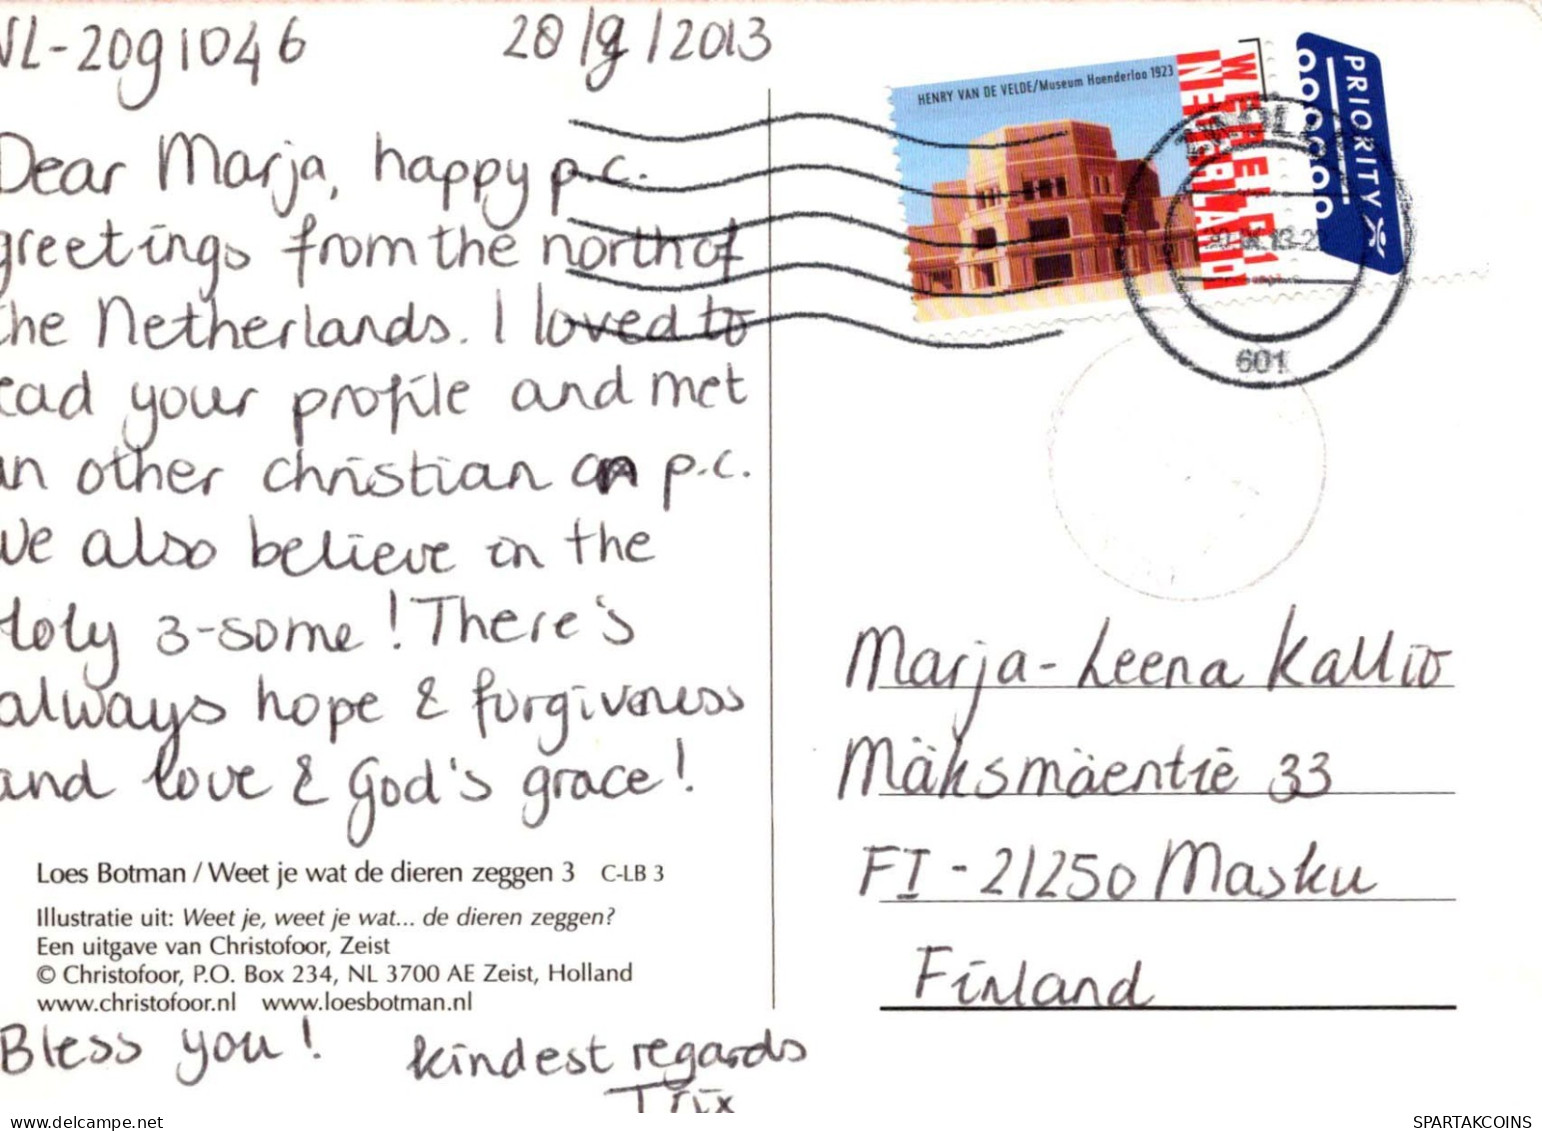 NL-2091046 28/9/2013
Dear Marja, happy p.c.
greetings from the north of
the Netherlands. I loved to
read your profile and met
an other christian on p.c.
We also believe in the
Holy 3-some! There's
always hope & forgiveness
and love & God's grace!
Loes Botman / Weet je wat de dieren zeggen 3 C-LB 3
Illustratie uit: Weet je, weet je wat... de dieren zeggen?
Een uitgave van Christofoor, Zeist
© Christofoor, P.O. Box 234, NL 3700 AE Zeist, Holland
www.christofoor.nl www.loesbotman.nl
Bless you! kindest regards
Trix
HENRY VAN DE VELDE/Museum Hoenderloo 1923
WERELD 1
NEDERLAND
PRIORITY
601
Marja-Leena Kallio
Mäksmäentie 33
FI-21250 Masku
Finland
delcampe.net
SPARTAKCOINS